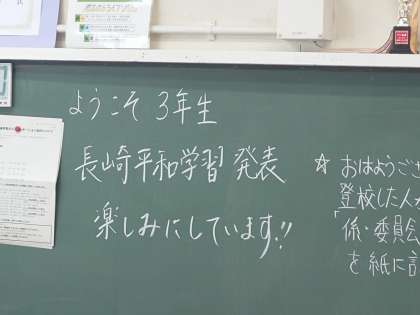 ようこそ 3年生
長崎平和学習 発表
楽しみにしています!!
☆ おはようござ
登校した人
「係・委員会
を紙に